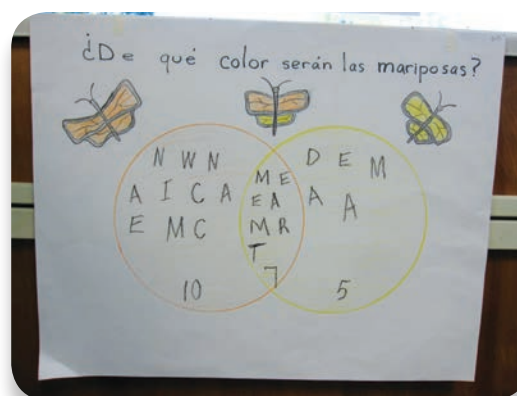 ¿De qué color serán las mariposas?
N W N
A I C A
E M C
10
M E
E A
M R
T
7
D E M
A A
5